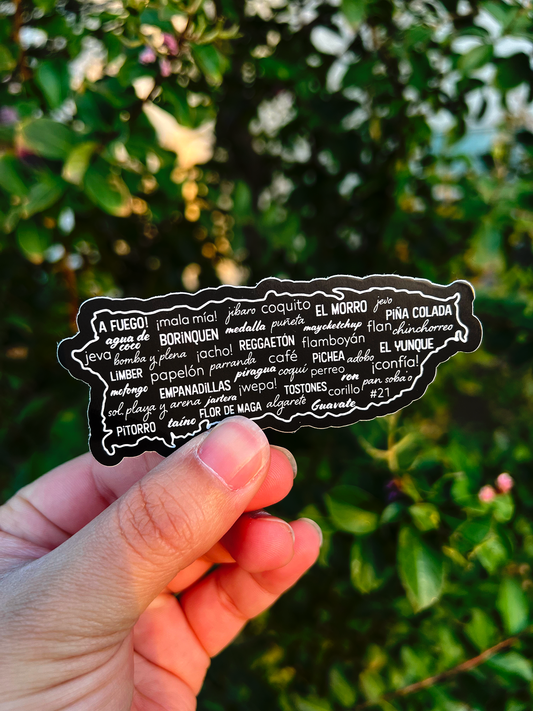 A FUEGO! ¡mala mía! jíbaro coquito EL MORRO jevo PIÑA COLADA
agua de coco BORINQUEN medalla puñeta mayoketchup flan chinchorreo
jeva bomba y plena ¡acho! REGGAETÓN flamboyán EL YUNQUE
LiMBER papelón parranda café PiCHEA adobo ¡confía!
mofongo EMPANADILLAS piragua coquí perreo ron pan soba'o
sol, playa y arena jartera ¡wepa! TOSTONES corillo #21
PiTORRO taíno FLOR DE MAGA algarete Guavate